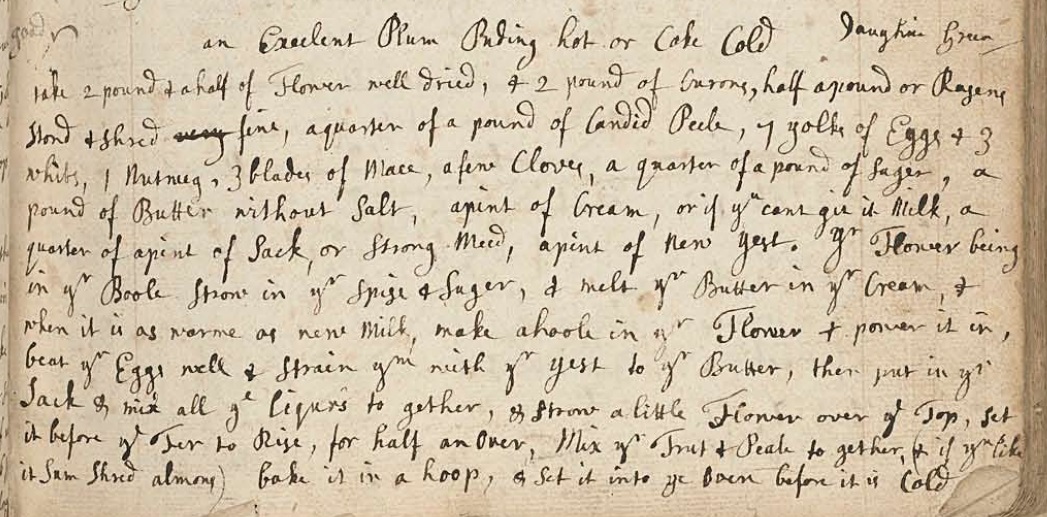 good
an Excelent Plum Puding hot or Cake Cold Daughter Green
take 2 pound & a half of Flower well dried, & 2 pound of Curons, half a pound or Rasens
Stond & shred very fine, a quarter of a pound of Candid Peele, 7 yolks of Eggs & 3
whits, 1 Nutmeg, 3 blades of Mace, a few Cloves, a quarter of a pound of Suger, a
pound of Butter without Salt, a pint of Cream, or if yu cant git it Milk, a
quarter of a pint of Sack, or Strong Meed, a pint of New Yest. yr Flower being
in yr Boole Strow in yr Spise & Suger, & melt yr Butter in yr Cream, &
when it is as warme as new Milk, make a hoole in yr Flower & power it in,
beat yr Eggs well & Strain ym with yr yest to yr Butter, then put in yr
Sack & mix all ye liqurs to gether, & Strow a little Flower over ye Top, set
it before ye Fier to Rise, for half an Ower, Mix yr Frut & Peale to gether, (& if yu like
it Sum Shred almons) bake it in a hoop, & Set it into ye Oven before it is Cold